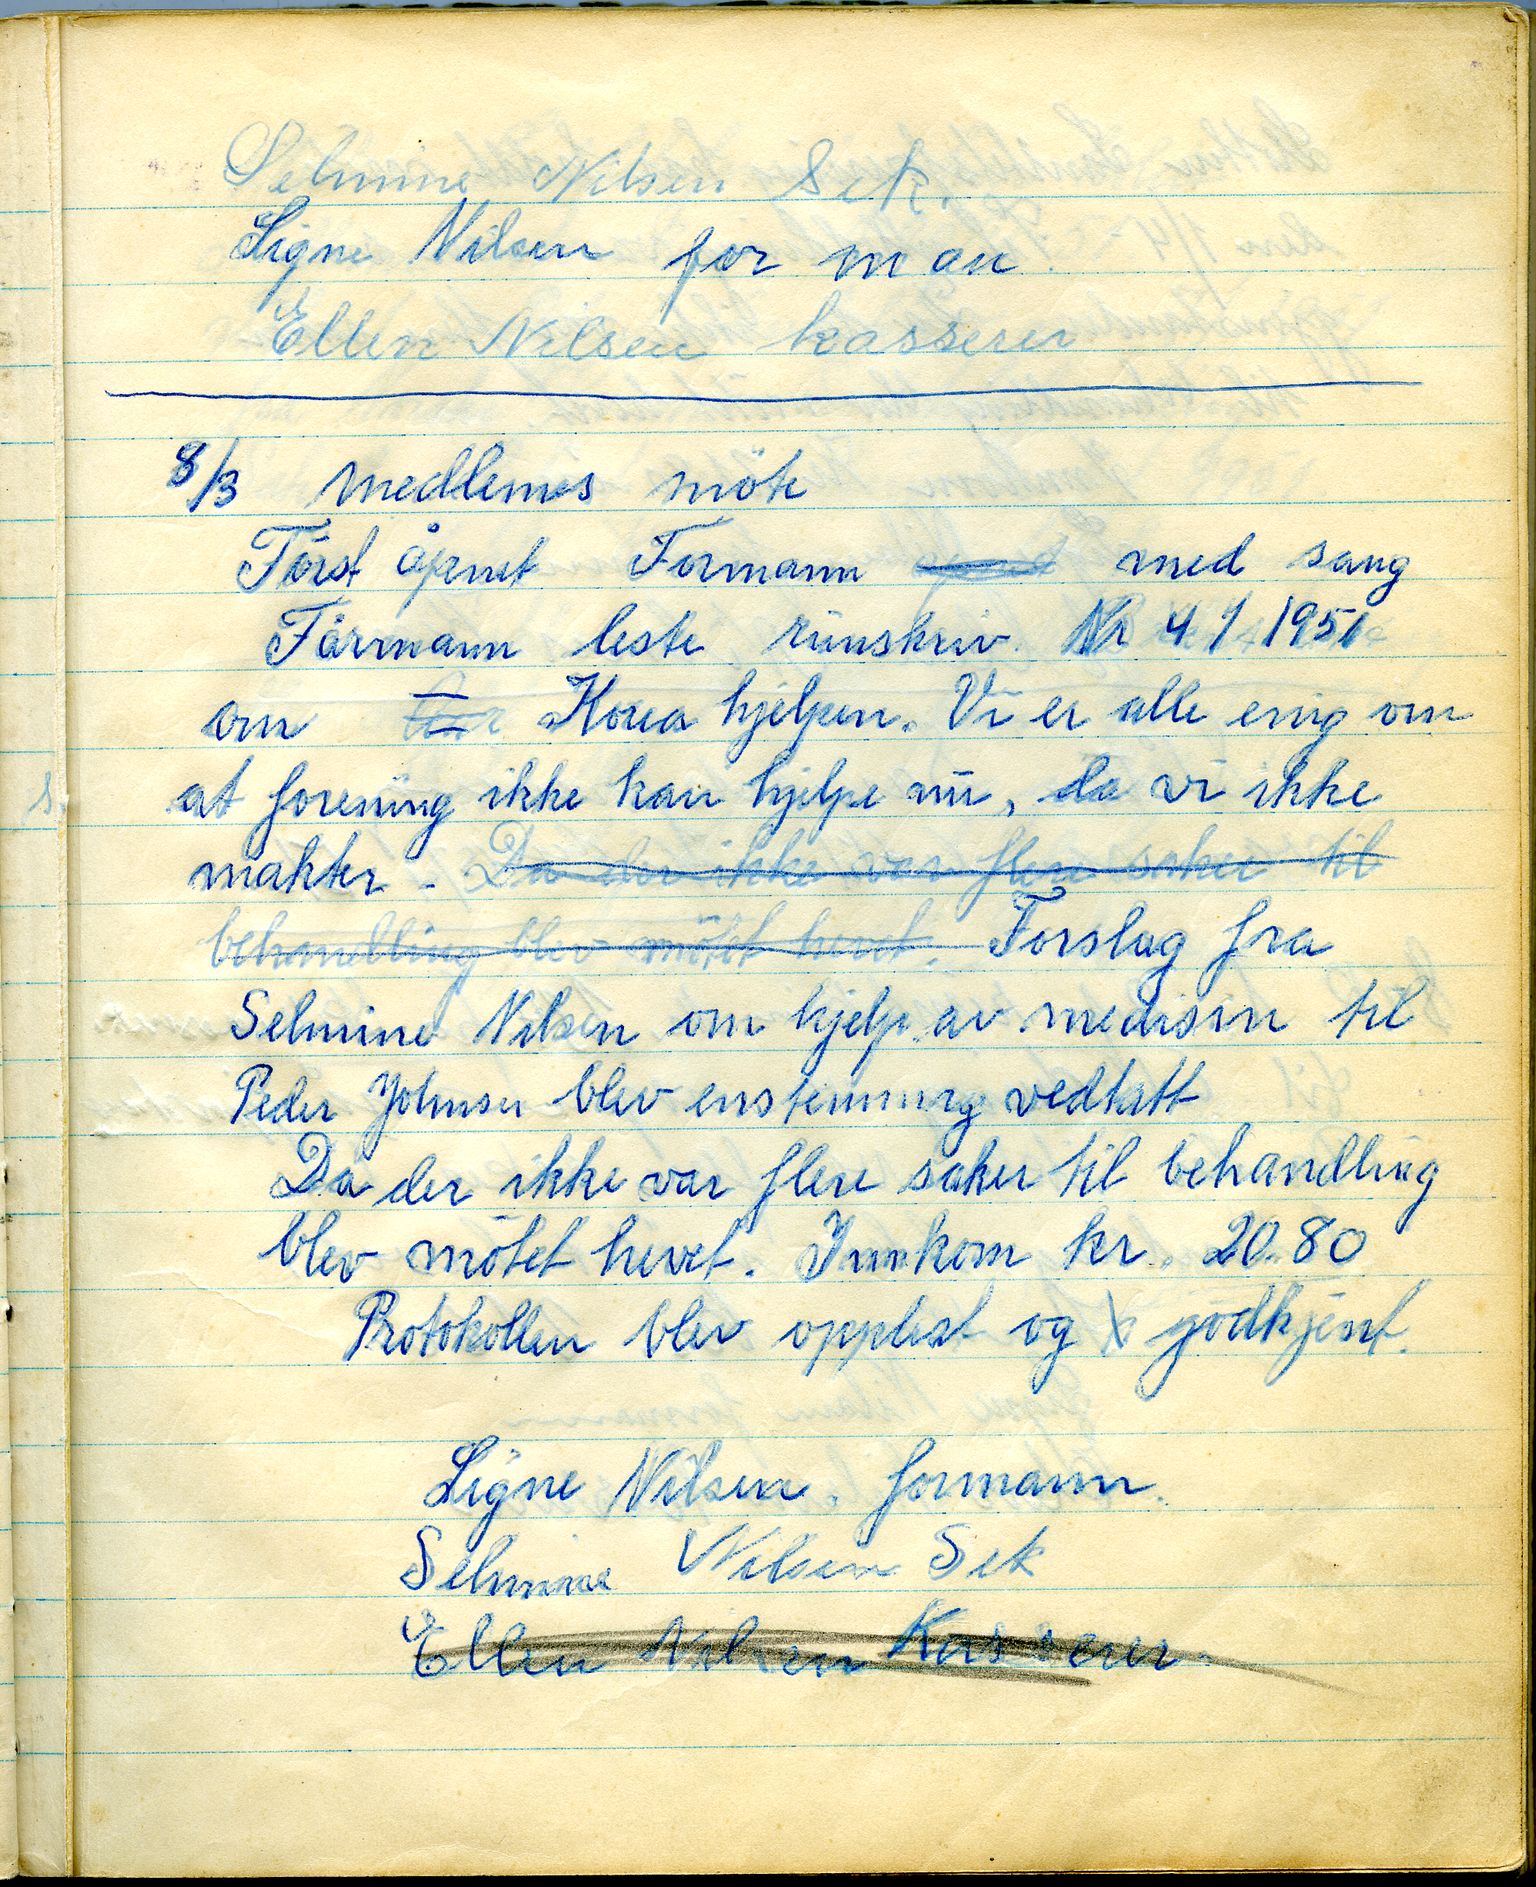 Selmine Nilsen Sek.
Signe Nilsen for man
Ellen Nilsen kasserer
8/3 medlemes möte
Först åpnet Formann med sang
Formann leste runskriv. Nr 4 / 1951
om Korea hjelpen. Vi er alle enig om
at forening ikke kan hjelpe nu, da vi ikke
makter - Da der ikke var flere saker til
behandling blev mötet hevet. Forslag fra
Selmine Nilsen om hjelp av medisin til
Peder Johnsen blev enstemmig vedtatt
Da der ikke var flere saker til behandling
blev mötet hevet. Innkom kr. 20.80
Protokollen blev opplest og godkjent.
Signe Nilsen. formann.
Selmine Nilsen Sek
Ellen Nilsen Kasserer.